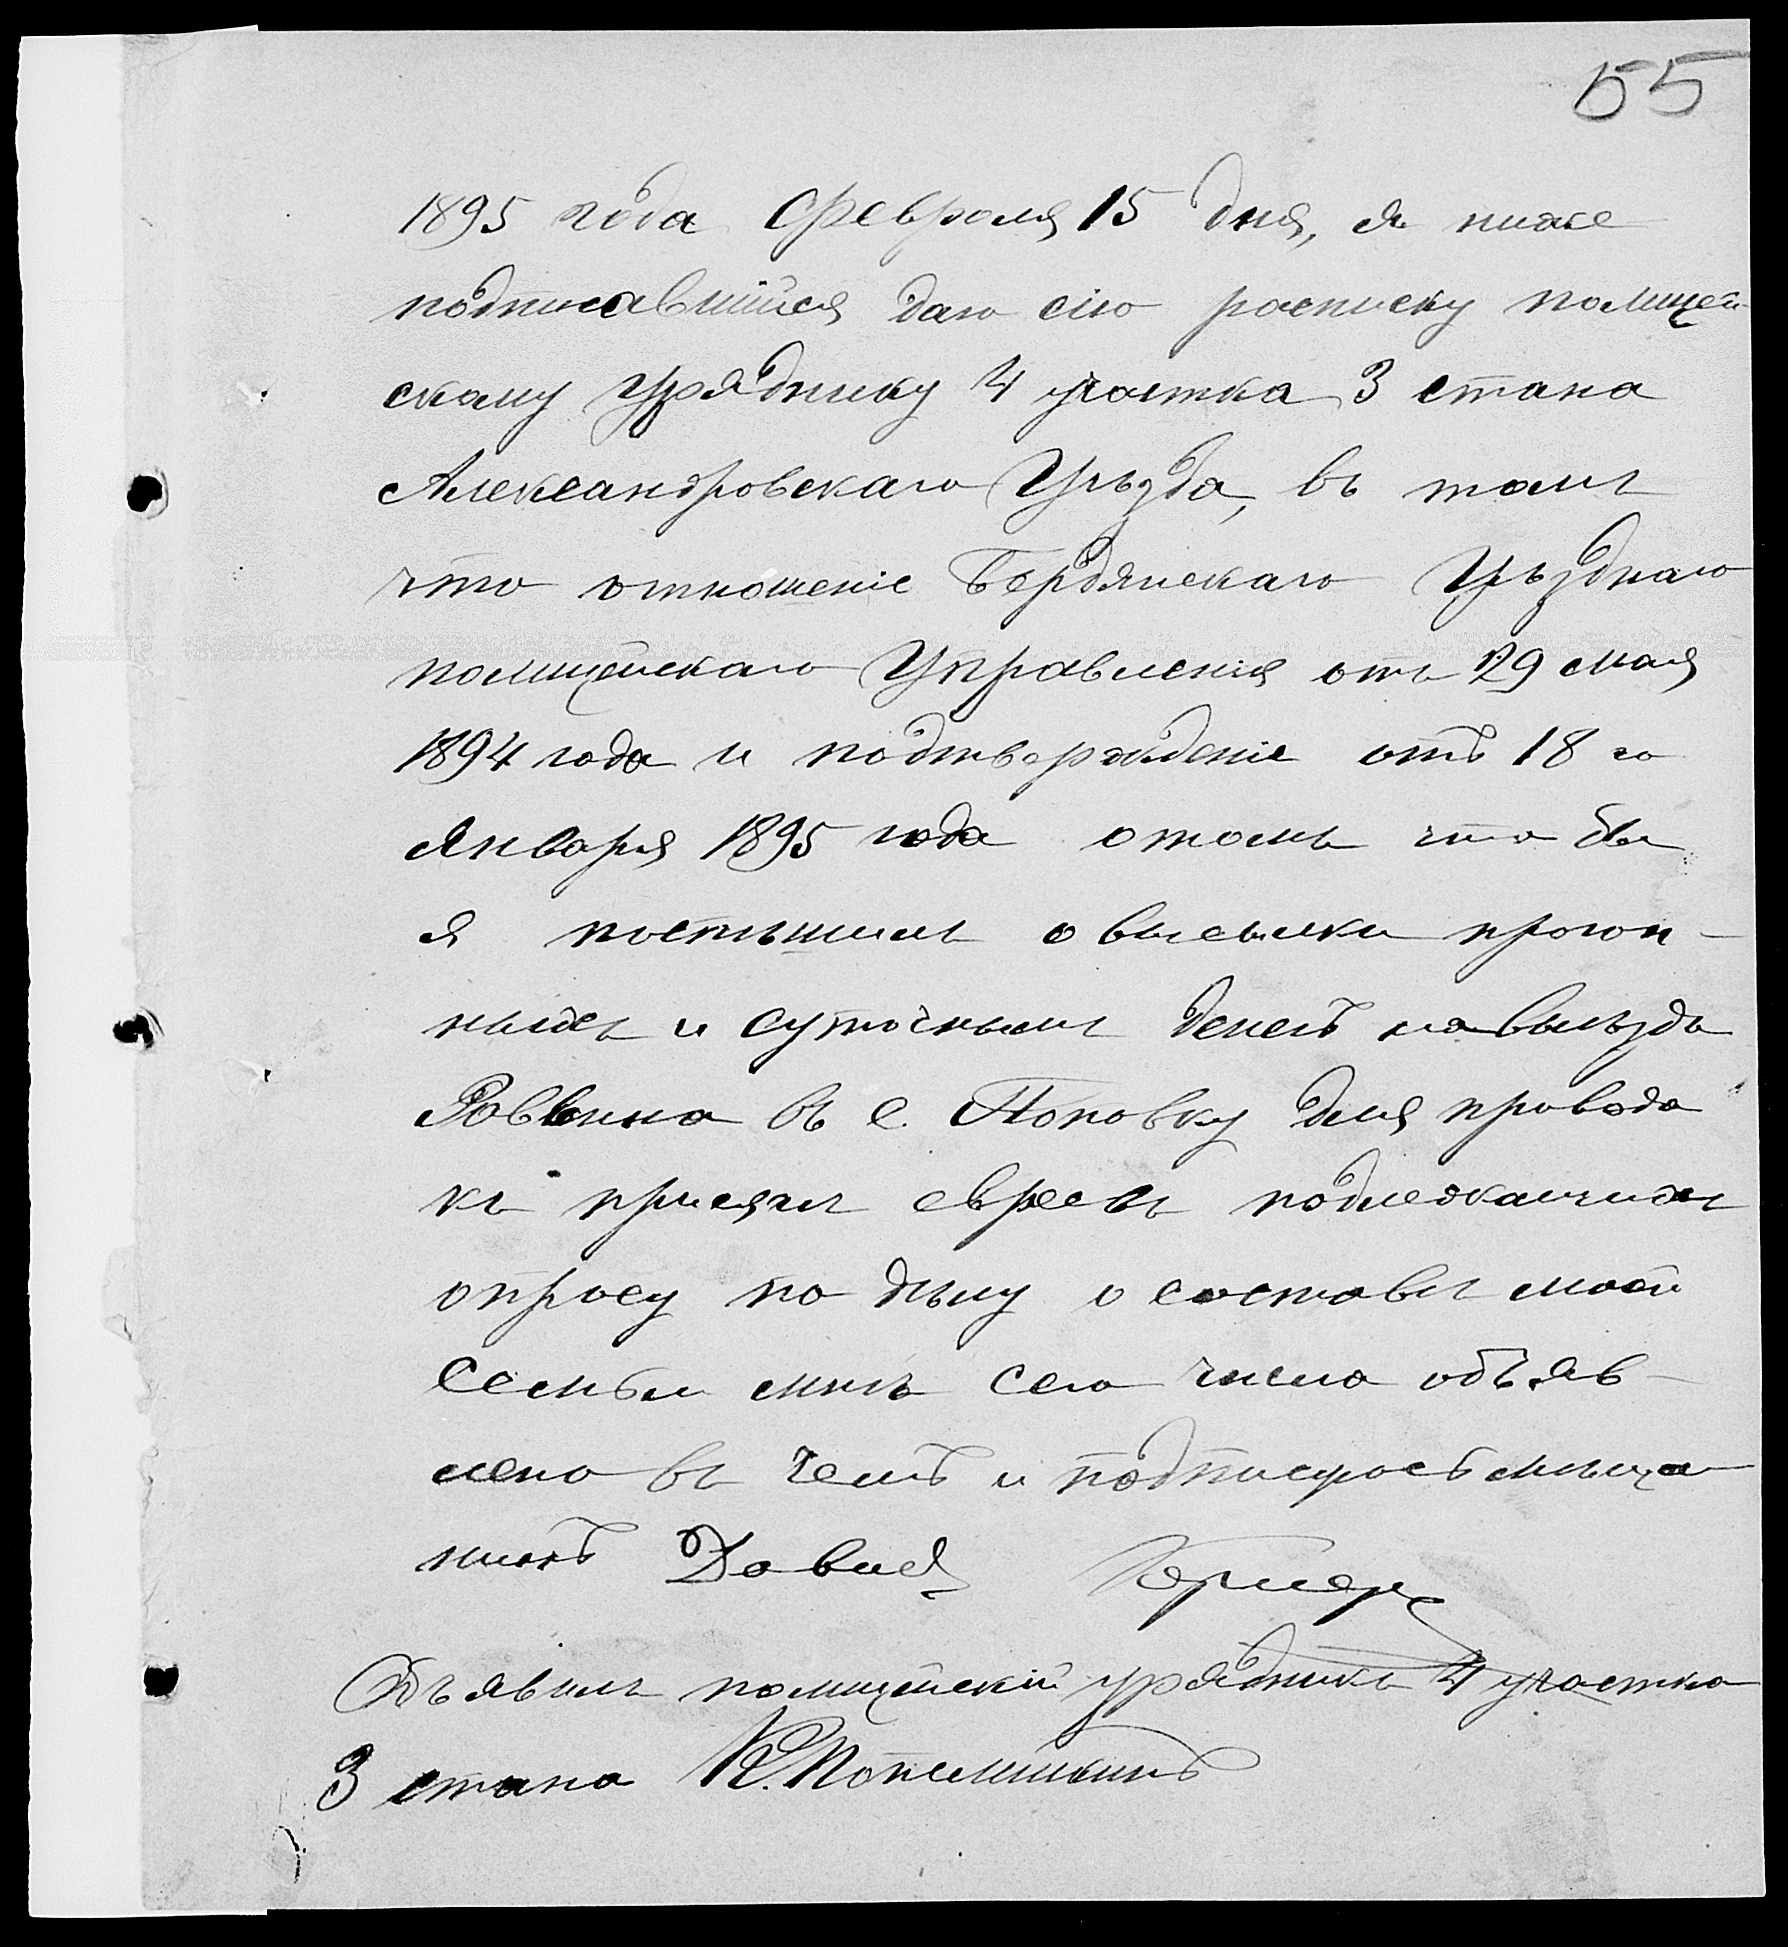 55
1895 года Февраля 15 дня, я ниже
подписавшійся даю сію росписку полицей-
скому Уряднику 4 участка 3 стана
Александровскаго Уѣзда, въ томъ
что отношеніе Бердянскаго Уѣзднаго
полицейскаго Управленія отъ 29 мая
1894 года и подтвержденіе отъ 18 го
Января 1895 года отомъ что бы
я поспѣшилъ о высылки прогон-
ныхъ и суточныхъ денегъ на выѣздъ
Раввина въ с. Поповку для привода
къ присягѣ евреевъ подлежащихъ
опросу по дѣлу о составѣ моей
Семьи мнѣ сего числа объяв-
лено въ чемъ и подписуюсь мѣща
нинъ Давид
Объявилъ полицейскій урядникъ 4 участка
3 стана